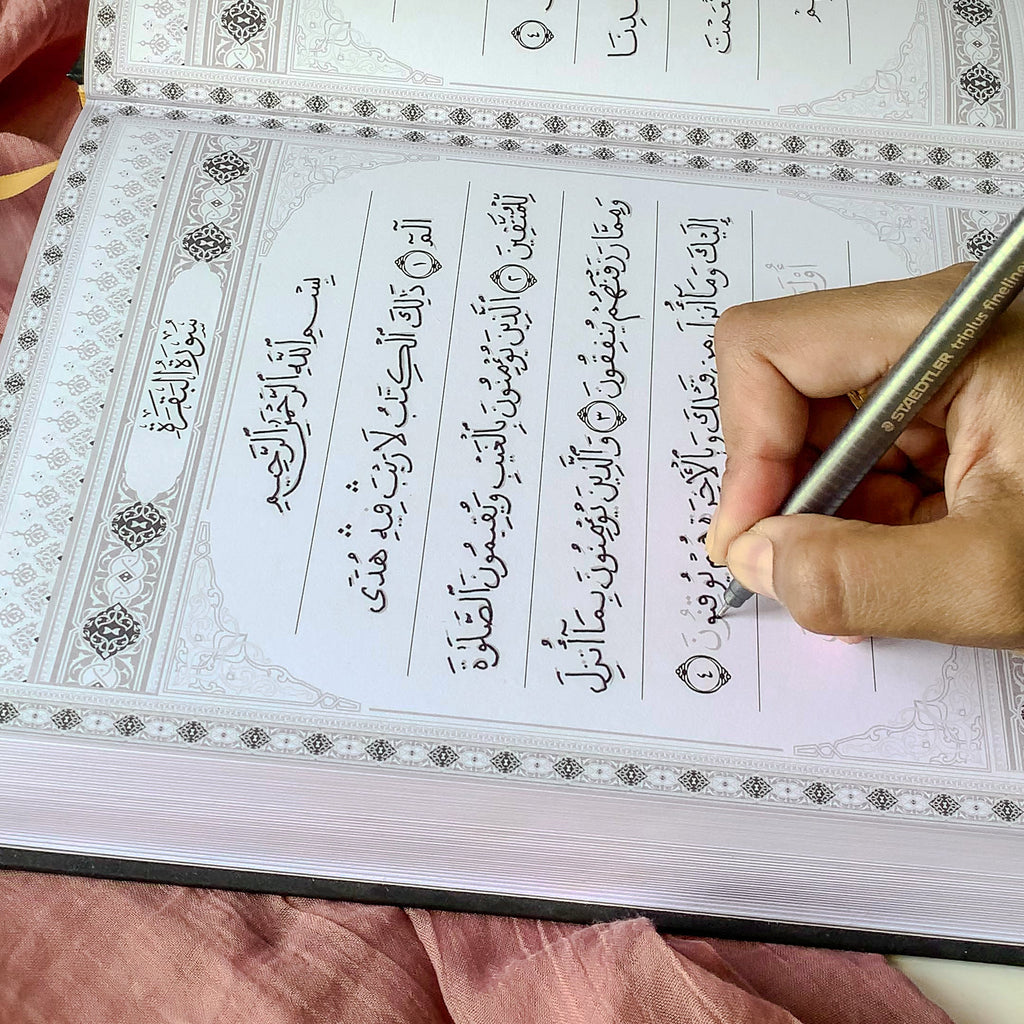 سُورَةُ الْبَقَرَةِ
بِسْمِ ٱللَّهِ ٱلرَّحْمَٰنِ ٱلرَّحِيمِ
الٓمٓ ١ ذَٰلِكَ ٱلْكِتَٰبُ لَا رَيْبَ ۛ فِيهِ ۛ هُدًى
لِّلْمُتَّقِينَ ٢ ٱلَّذِينَ يُؤْمِنُونَ بِٱلْغَيْبِ وَيُقِيمُونَ ٱلصَّلَوٰةَ
وَمِمَّا رَزَقْنَٰهُمْ يُنفِقُونَ ٣ وَٱلَّذِينَ يُؤْمِنُونَ بِمَآ أُنزِلَ
إِلَيْكَ وَمَآ أُنزِلَ مِن قَبْلِكَ وَبِٱلْأٓخِرَةِ هُمْ يُوقِنُونَ ٤
٤
STAEDTLER triplus fineline